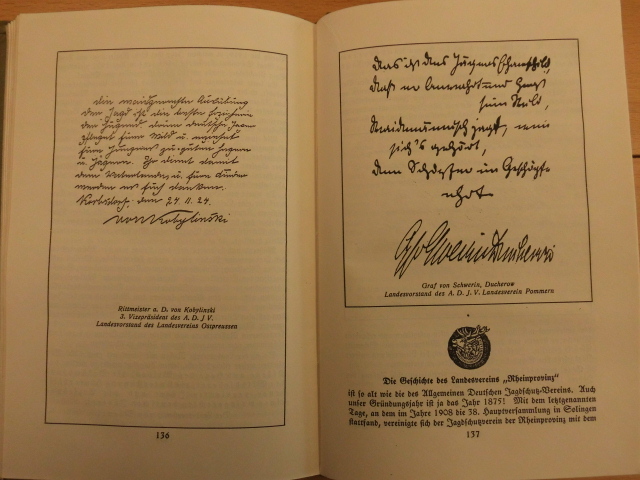 Die waidgerechte Ausübung
der Jagd ist die beste Erzieherin
der Jugend, denn deutsche Jäger
pfleget Eure Wild u. erziehet
Eure Jungens zu guten Hegern
u. Jägern. Ihr dient damit
dem Vaterlande, u. Eure Kinder
werden es Euch danken.
den 24.11.24.
von Kobylinski
Rittmeister a. D. von Kobylinski
3. Vizepräsident des A. D. J. V.
Landesvorstand des Landesvereins Ostpreussen
136
Das ist des Jägers Ehrenschild,
daß er bewahrt und hegt
sein Wild,
Waidmännisch jagt, wie
sich's gehört,
Den Schöpfer im Geschöpfe
ehrt
Graf von Schwerin, Ducherow
Landesvorstand des A. D. J. V. Landesverein Pommern
Die Geschichte des Landesvereins „Rheinprovinz“
ist so alt wie die des Allgemeinen Deutschen Jagdschutz-Vereins. Auch
unser Gründungsjahr ist ja das Jahr 1875! Mit dem letztgenannten
Tage, an dem im Jahre 1908 die 38. Hauptversammlung in Solingen
stattfand, vereinigte sich der Jagdschutzverein der Rheinprovinz mit dem
137